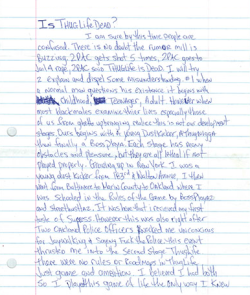 Is THUG Life Dead?
I am sure by this time people are
confused. There is no doubt the rumor mill is
Buzzing. 2PAC gets shot 5 times, 2PAC goes to
jail 4 rape, 2PAC said Thug Life Is Dead. I will try
2 explain and dispel some misunderstandings. #1 when
a normal man questions his existence it begins with
Childhood, Teenager, Adult. However when
most black males examine their lives especially those
of us from ghetto upbringing replace this with
stages. Ours begins with a young Dust Kicker,
then finally a Boss Playa. Each stage has many
obstacles and pleasure, but they are all lethal if not
played properly. Growing up in New York I was a
young dust kicker from 183rd & Walton Avenue. I then
went from Baltimore to Marin County to Oakland where I
was schooled in the Rules of the Game by Boss Playaz
and street hustlaz. It was here that I received my first
taste of success. However this was also right after
Two Oakland Police Officers knocked me unconscious
for Jaywalking & Singing Fuck the Police. This event
thrusted me into the Second Stage Thuglife
There were no rules or Roadmaps in Thug Life
Just game and ambition. I believed I had both
So I Played this game of life the Only way I Knew